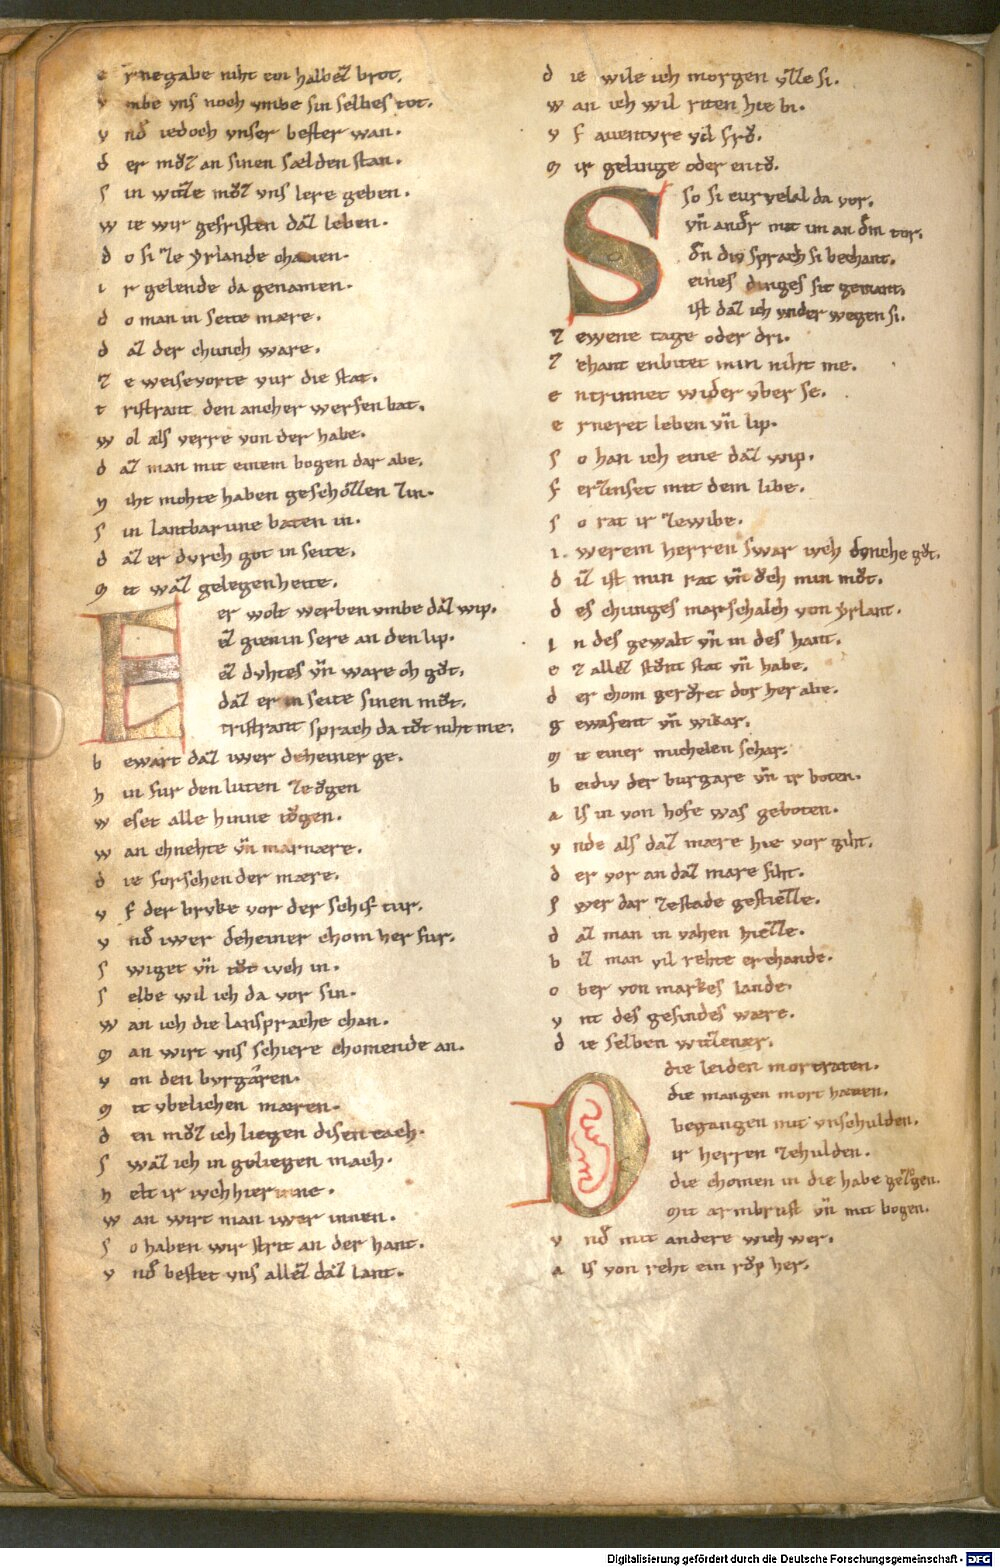 e rnegabe niht ein halbez brot.
v mbe vns noch vmbe sin selbes tot.
v nd iedoch vnser bester wan.
d er mvͦz an sinen sælden stan.
s in witze mvͦz vns lere geben.
w ie wir gefristen daz leben.
d o si ze yrlande chamen.
i r gelende da genamen.
d o man in seite mære.
d az der chunch ware.
z e weisevorte vur die stat.
t ristrant den ancher werfen bat.
w ol als verre von der habe.
d az man mit einem bogen dar abe.
n iht mohte haben geschozzen zin.
s in lantbarune baten in.
d az er dvrch got in seite.
m it waz gelegenheite.
Er wolt werben vmbe daz wip.
ez gienin sere an den lip.
ez dvhtes vn̄ ware och gvͦt.
daz er in seite sinen mvͦt.
tristrant sprach da tvͦt niht me.
b ewart daz iwer deheiner ge.
h in fur den luten ze ovgen
w eset alle hinne tovgen.
w an chnehte vn̄ marnære.
d ie forschen der mære.
v f der brvke vor der schif tur.
v nd iwer deheiner chom her fur.
s wiget vn̄ tvͦt iwch in.
s elbe wil ich da vor sin.
w an ich die lansprache chan.
m an wirt vns schiere chomende an.
v on den bvrgæren.
m it vbelichen mæren.
d en mvͦz ich liegen disen each.
s waz ich in geliegen mach.
h elt ir iwch hier inne.
w an wirt man iwer innen.
s o haben wir strit an der hant.
v nd bestet vns allez daz lant.
d ie wile ich morgen vzze si.
w an ich wil riten hie bi.
v f auentvre vil frvͦ.
m ir gelinge oder entvͦ.
So si eur velal da vor.
vn̄ andr mit im an dem tor.
den div sprach si bechant.
eines dinges sit gemant.
ist daz ich vnder wegen si.
z ewene tage oder dri.
z ehant enbitet min niht me.
e ntrinnet wider vber se.
e rneret leben vn̄ lip.
s o han ich eine daz wip.
f erzinset mit dem libe.
s o rat ir zewibe.
i werem herren swar iwch dvnche gvͦt.
d iz ist min rat vn̄ ovch min mvͦt.
d es chunges marschalch von yrlant.
i n des gewalt vn̄ in des hant.
e z allez stvͦnt stat vn̄ habe.
d er chom gervͦret dor her abe.
g ewafent vn̄ wikar.
m it einer michelen schar.
b eidiv der burgare vn̄ ir boten.
a ls in von hofe was geboten.
v nde als daz mære hie vor giht.
d er vor an daz mare siht.
s wer dar zestade gestiezze.
d az man in vahen hiezze.
b iz man vil rehte erchande.
o ber von markes lande.
v nt des gesindes wære.
d ie selben witzenær.
Die leiden mortraten.
die mangen mort haten.
begangen mit vnschulden.
ir herren zehulden.
die chomen in die habe gezogen.
mit armbrust vn̄ mit bogen.
v nd mit andere wich wer.
a ls von reht ein rovp her.
Digitalisierung gefördert durch die Deutsche Forschungsgemeinschaft - DFG